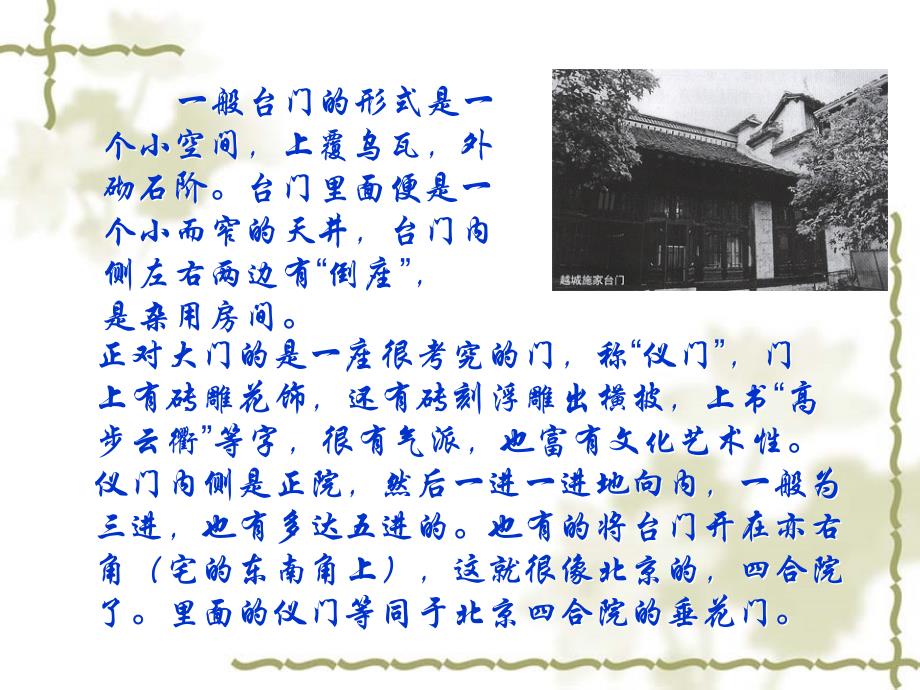 一般台门的形式是一
个小空间，上覆乌瓦，外
砌石阶。台门里面便是一
个小而窄的天井，台门内
侧左右两边有“倒座”，
是杂用房间。
越城施家台门
正对大门的是一座很考究的门，称“仪门”，门
上有砖雕花饰，还有砖刻浮雕出横披，上书“高
步云衢”等字，很有气派，也富有文化艺术性。
仪门内侧是正院，然后一进一进地向内，一般为
三进，也有多达五进的。也有的将台门开在亦右
角（宅的东南角上），这就很像北京的，四合院
了。里面的仪门等同于北京四合院的垂花门。